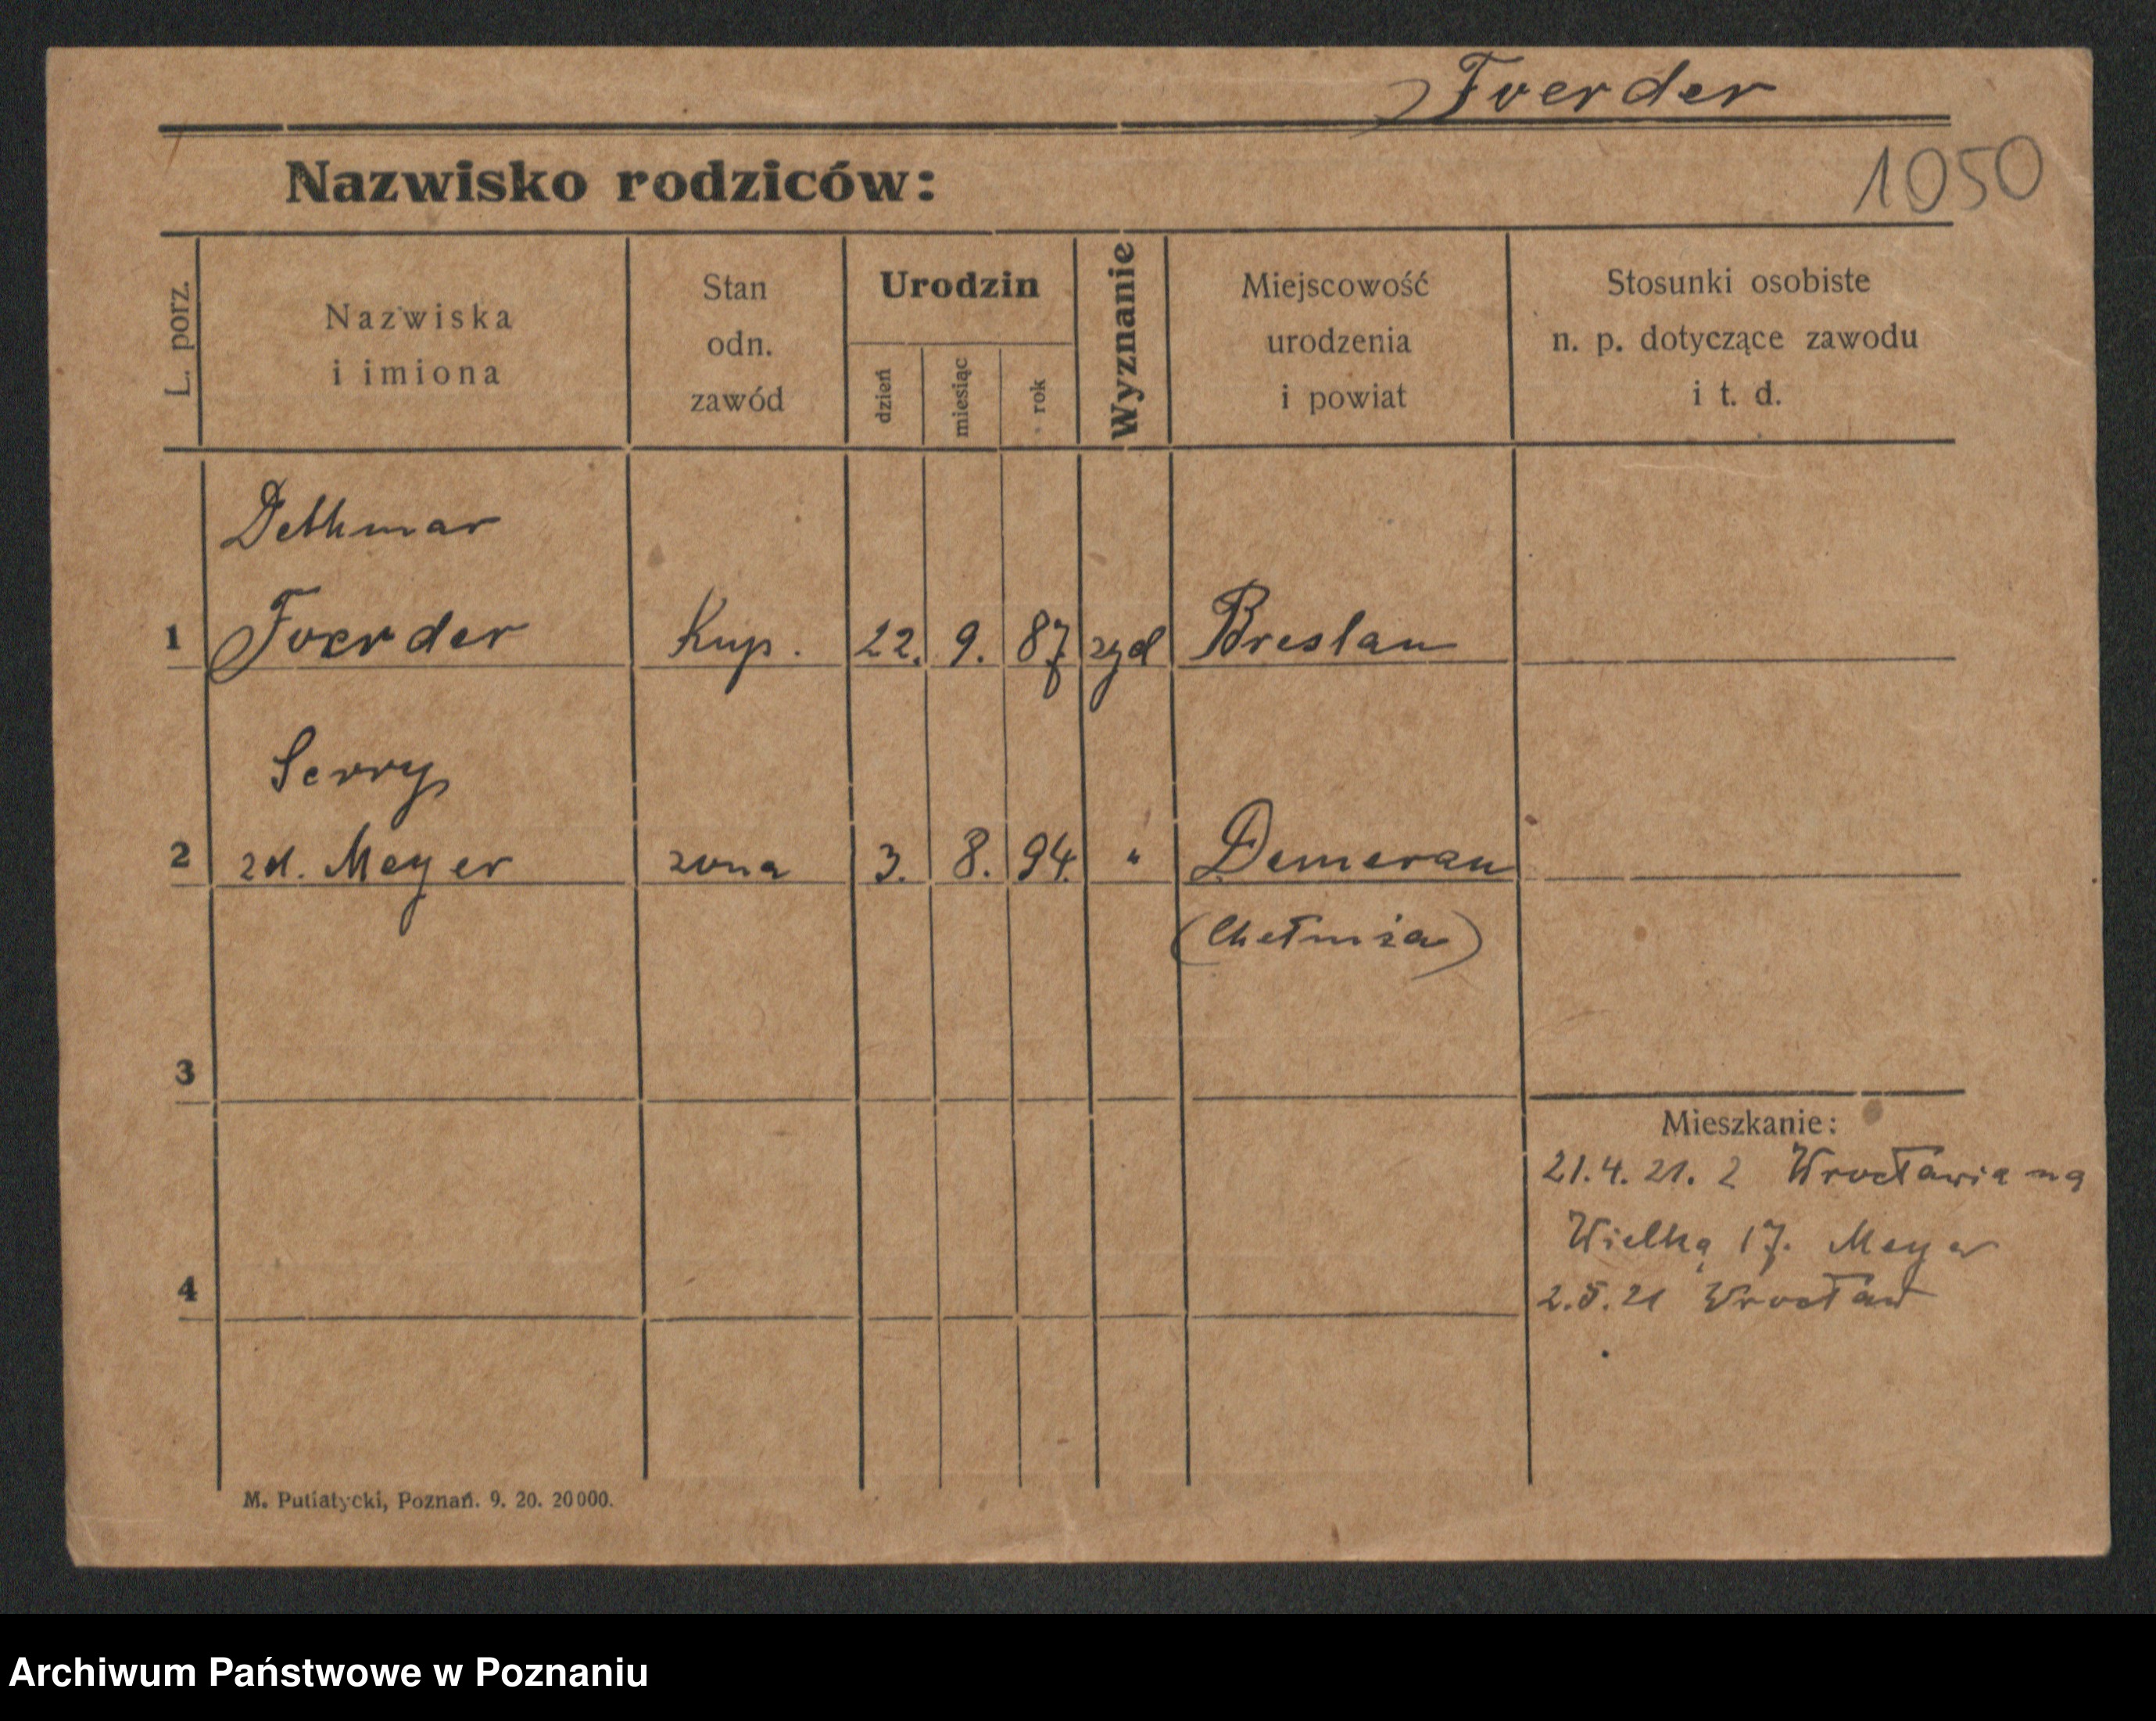 Foerder
1050
Nazwisko rodziców:
L. porz.
Nazwiska
i imiona
Stan
odn.
zawód
Urodzin
dzień
miesiąc
rok
Wyznanie
Miejscowość
urodzenia
i powiat
Stosunki osobiste
n. p. dotyczące zawodu
i t. d.
Dethmar
1 Foerder Kup. 22. 9. 87 zyd Breslau
Serry
2 zd. Meyer zona 3. 8. 94. " Demerau
(Chełmża)
3
Mieszkanie:
21.4.21. z Wrocławia na
Wielką 17. Meyer
4
2.5.21 Wrocław
M. Putiatycki, Poznań. 9. 20. 20000.
Archiwum Państwowe w Poznaniu